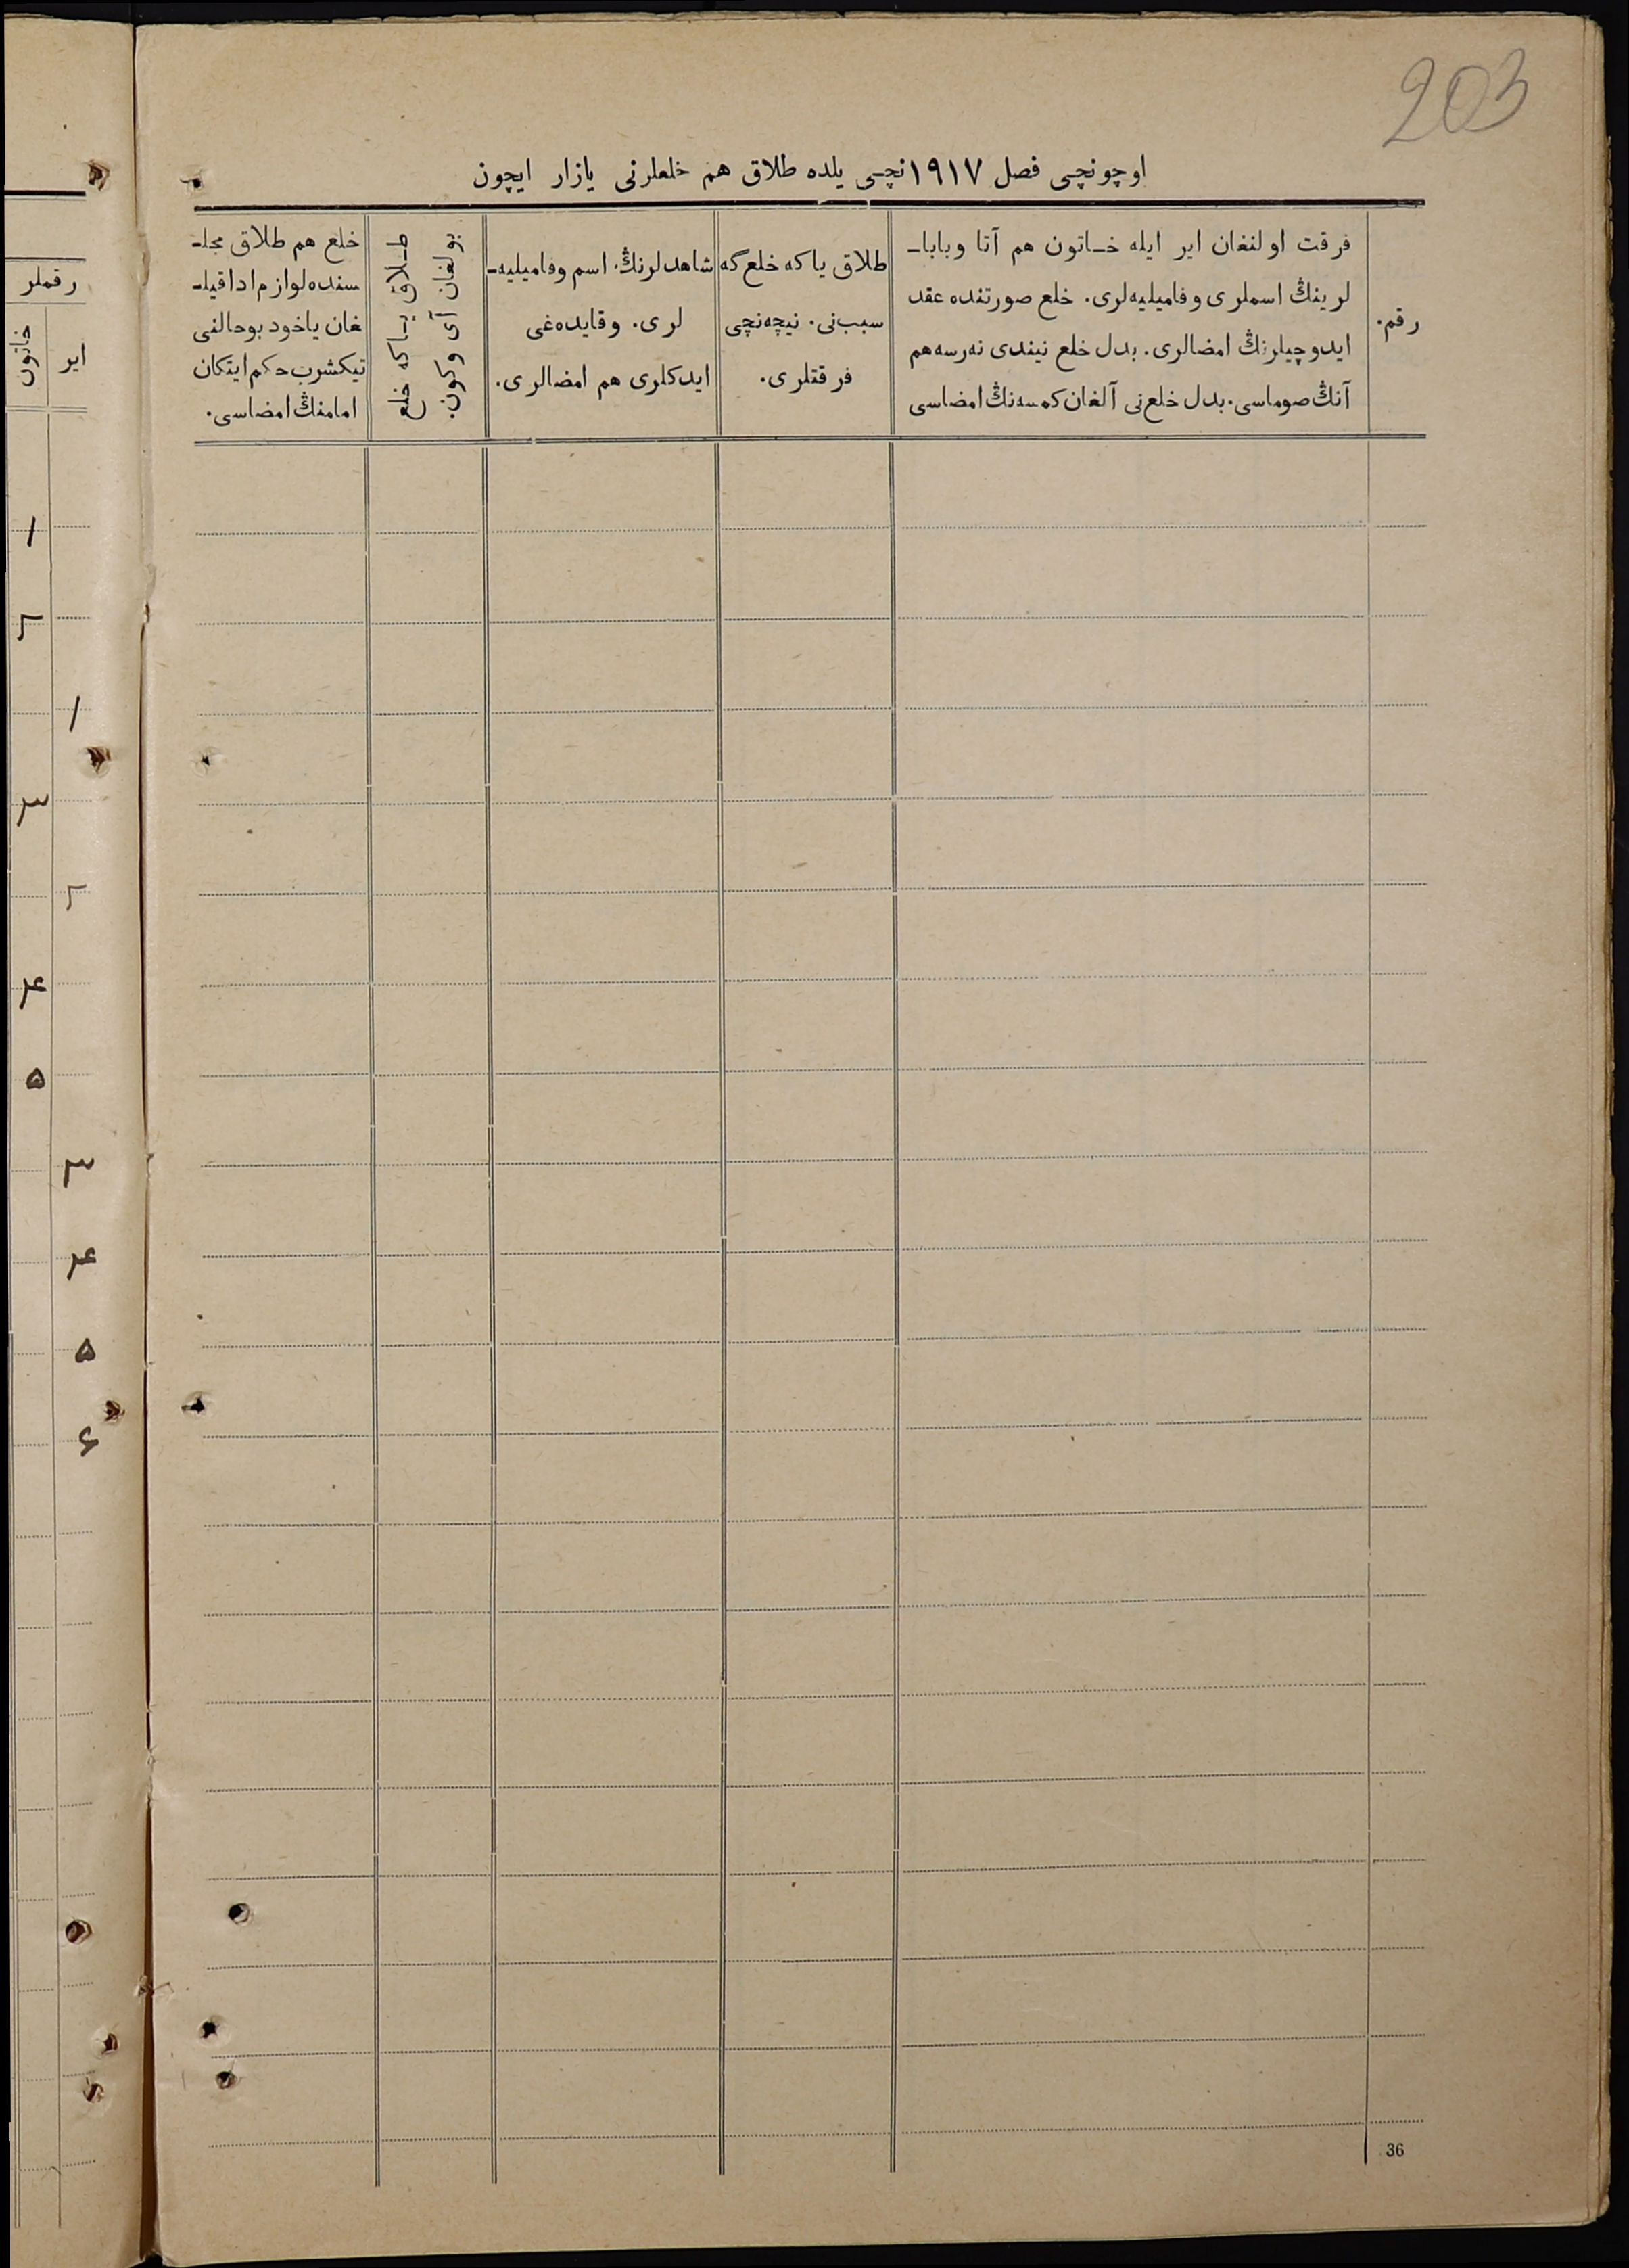 203
اوچونچی فصل ١٩١٧نچی یلده طلاق هم خلعلرنی یازار ایچون
رقم.
فرقت اولنغان ایر ایله خـاتون هم آتا وبابا۔
لرینڭ اسملری وفامیلیه‌لری. خلع صورتنده عقد
ایدوچیلرنڭ امضالری. بدل خلع نیندی نه‌رسه هم
آنڭ صوماسی. بدل خلع‌نی آلغان کمسه‌نڭ امضاسی
طلاق یاکه خلع گه
سبب‌نی. نیچه‌نچی
فرقتلری.
شاهدلرنڭ اسم وفامیلیه۔
لری. وقایده‌غی
ایدکلری هم امضالری.
طـلاق یـاکه خلع
بولغان آی وکون.
خلع هم طلاق مجلـ
سنده لوازم ادا قیلـ
غان یاخود بوحالنی
تیکشرب حکم ایتکان
امامنڭ امضاسی.
36
رقملر
ایر
خاتون
١
٢
١
٣
٢
۴
۵
٣
۴
۵
۶